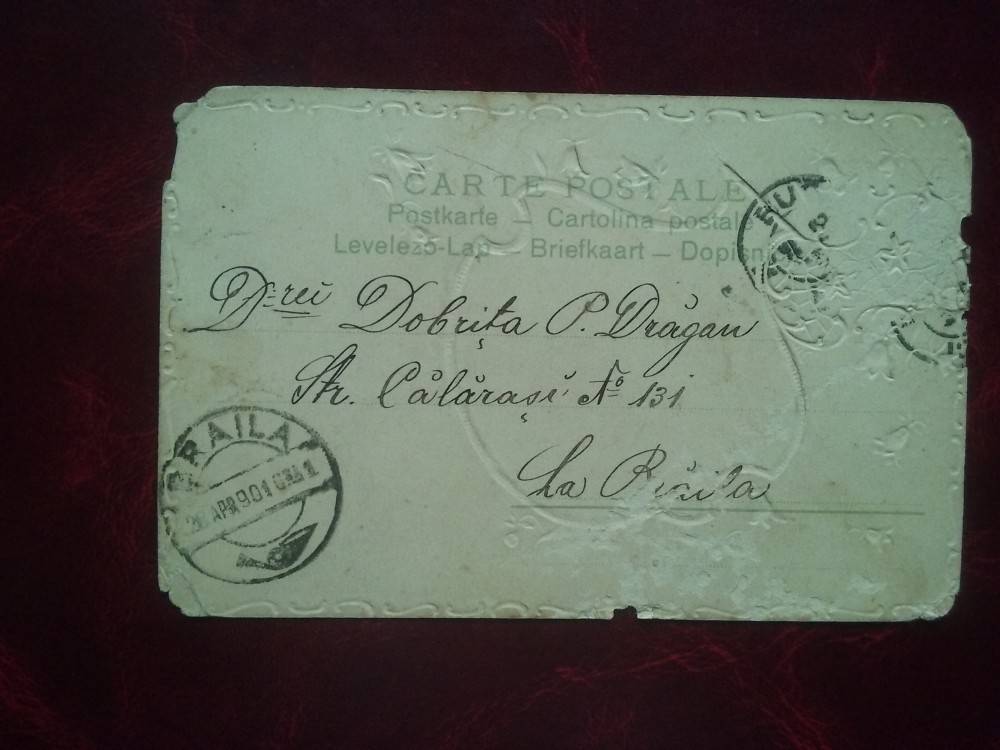 CARTE POSTALE
Postkarte — Cartolina postale
Levelező-Lap — Briefkaart — Dopisni
D-rei Dobrița P. Drăgan
Str. Călărași No 131
La Brăila
BRAILA
APR 901